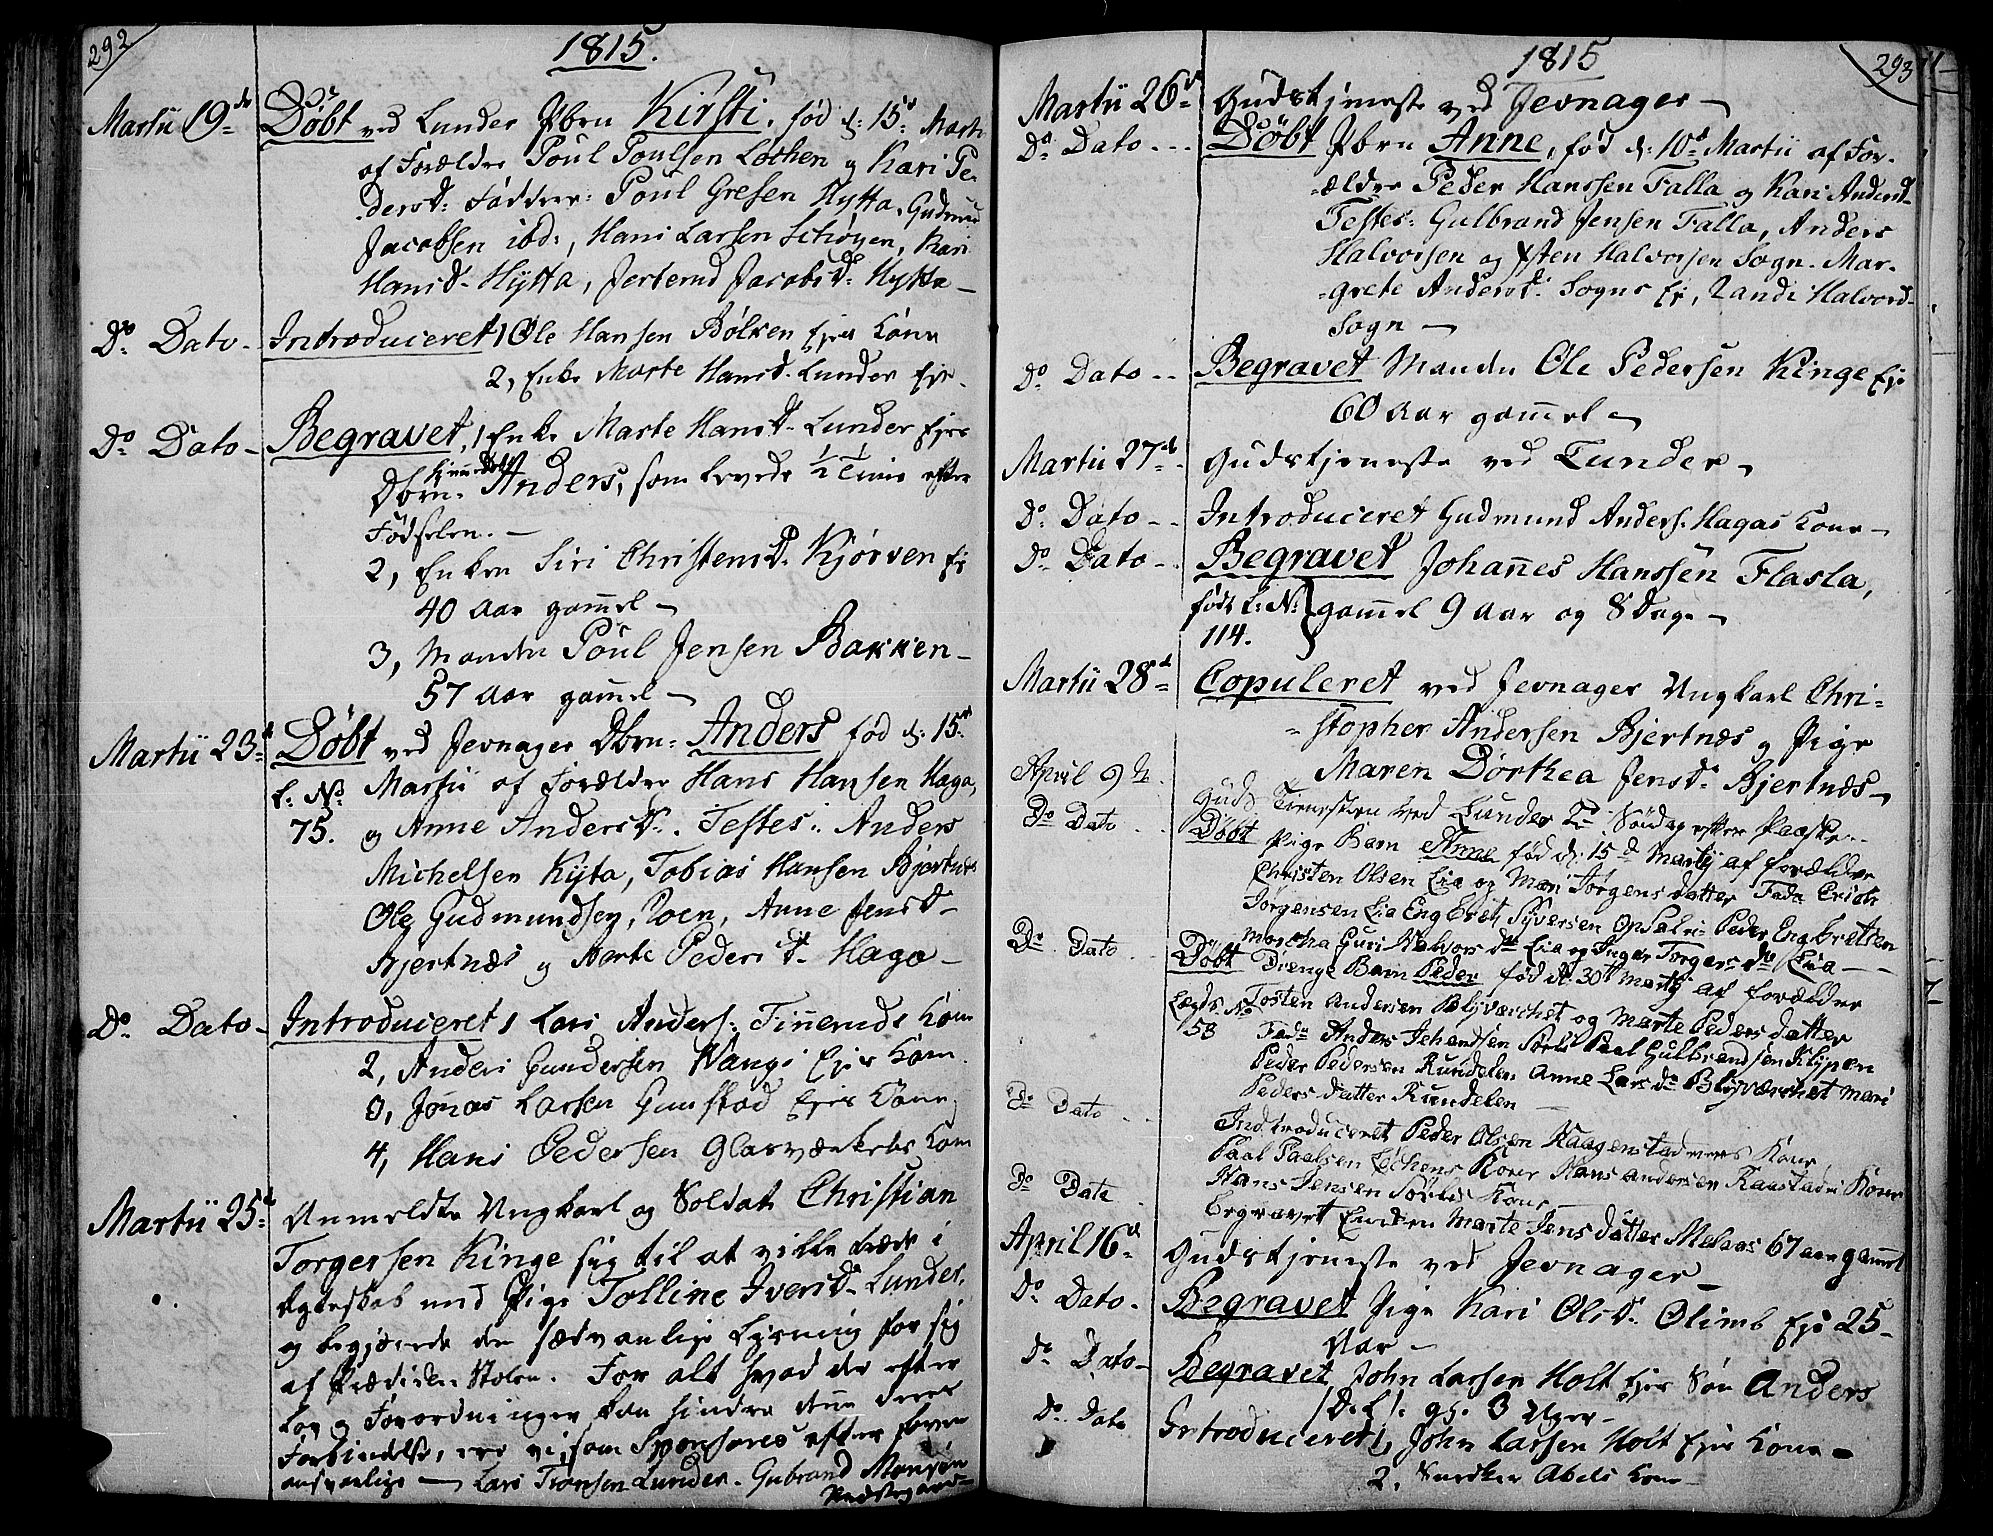 292
1815.
Martii 19de Døbt ved Lunder Pbrn Kirsti, fød d: 15d Martii
af Forældre Poul Poulsen Lochen og Kari Pe-
dersd: Faddere: Poul Gresen Hytta, Gudmun
Jacobsen ibd:, Hans Larsen Schøyen, Kari
Hansd. Hytta, Jertrud Jacobsd: Hytta -
Do Dato - Introduceret 1, Ole Hansen Bølken Ejes Kone
2, Enke Marte Hansd. Lunder Eje.
Do Dato - Begravet, 1, Enke Marte Hansd. Lunder Ejes
Dbrn. hiemmedøbt Anders, som levede 1/2 Time efter
Fødselen. -
2, Enken Siri Christensd. Kjørven Ej
40 Aar gammel -
3, Manden Poul Jensen Bakken -
57 Aar gammel -
Martii 23d Døbt ved Jevnager Dbrn: Anders fød d: 15d
L: No. Martii af Forældre Hans Hansen Haga,
75. og Anne Andersd. Testes: Anders
Michelsen Kyta, Tobias Hansen Bjertnæs
Ole Gudmundsen, Roen, Anne Jensd.
Bjertnæs og Marte Pedersd. Haga -
Do Dato - Introduceret 1 Lars Anders: Finneruds Kone
2, Anders Gundersen Wangs Ejes Kone.
3, Jonas Larsen Gunstad Ejes Kone,
4, Hans Pedersen Glasværkets Kone
Martii 25d Anmeldte Ungkarl og Soldat Christian
Torgersen Ringe sig til at ville træde i
Ægteskab med Pige Tolline Iversd. Lunder,
og begjærede den sædvanlige Lysning for sig
af Prædikestolen. For alt hvad der efter
Lov og Forordninger kan hindre denne deres
Forbindelse, ere vi som Sponsores efter Loven
ansvarlige - Lars Tronsen Lunder. Gubrand Monsen
Præstegaard
1815
293
Martii 26d Gudstjeneste ved Jevnager -
Do Dato - - - Døbt Pbrn Anne, fød d: 10d Martii af For-
ældre Peder Hanssen Falla og Kari Andersd-
Testes: Gulbrand Jensen Falla, Anders
Halvorsen og Østen Halvorsen Sogn. Mar-
grete Andersd: Sogns Ej, Randi Halvorsd-
Sogn -
Do Dato - - Begravet Manden Ole Pedersen Ringe Eje
60 Aar gammel -
Martii 27d Gudstjeneste ved Lunder -
Do Dato - - Introduceret Gudmund Anders. Hagas Kone -
Do Dato - - Begravet Johannes Hanssen Flasla,
L: No gammel 9 Aar og 8 Dage -
114.
Martii 28d Copuleret ved Jevnager Ungkarl Chri-
stopher Andersen Bjertnæs og Pige
Maren Dorthea Jensd. Bjertnæs -
April 9de Guds Tienesten ved Lunder 2de Søndag efter Paaske -
Do Dato Døbt Pige Barn Anne fød d. 15d Martij af forældre
Christen Olsen Lia og Mari Jørgensdatter Fadd Erich
Jørgensen Lia Engbret Syversen Opsal: Peder Engbretsen
Martha Guri Halvorsdr Lia og Inger Torgersdr Lia - -
Do Dato Døbt Drenge Barn Peder fød d. 30te Martij af forældre
Lægds No Tosten Andersen Blyværchet og Marte Pedersdatter
58 Fadr Anders Johandsen Sørli Paal Gulbrandsen Klypen
Peder Pedersen Rundelen Anne Larsdr Blyværchet Mari
Pedersdatter Rundelen
Do Dato Indtroduceret Peder Olsen Haagenstadmoens Kone
Paal Paalsen Løchens Kone Hans Andersen Raastads Kone
Hans Jensen Sørlis Kone
Do Date Begravet Enchen Marte Jensdatter Melaas 67 aar gammel
April 16d Gudstjeneste ved Jevnager -
Do Dato - Begravet Pige Kari Olsd. Olimb Eje 25-
Aar -
Do Dato - Begravet John Larsen Holt Ejes Søn Anders
gl. 3 Uger -
Do Dato Introduceret 1, John Larsen Holt Ejes Kone -
2. Snedker Abels Kone -